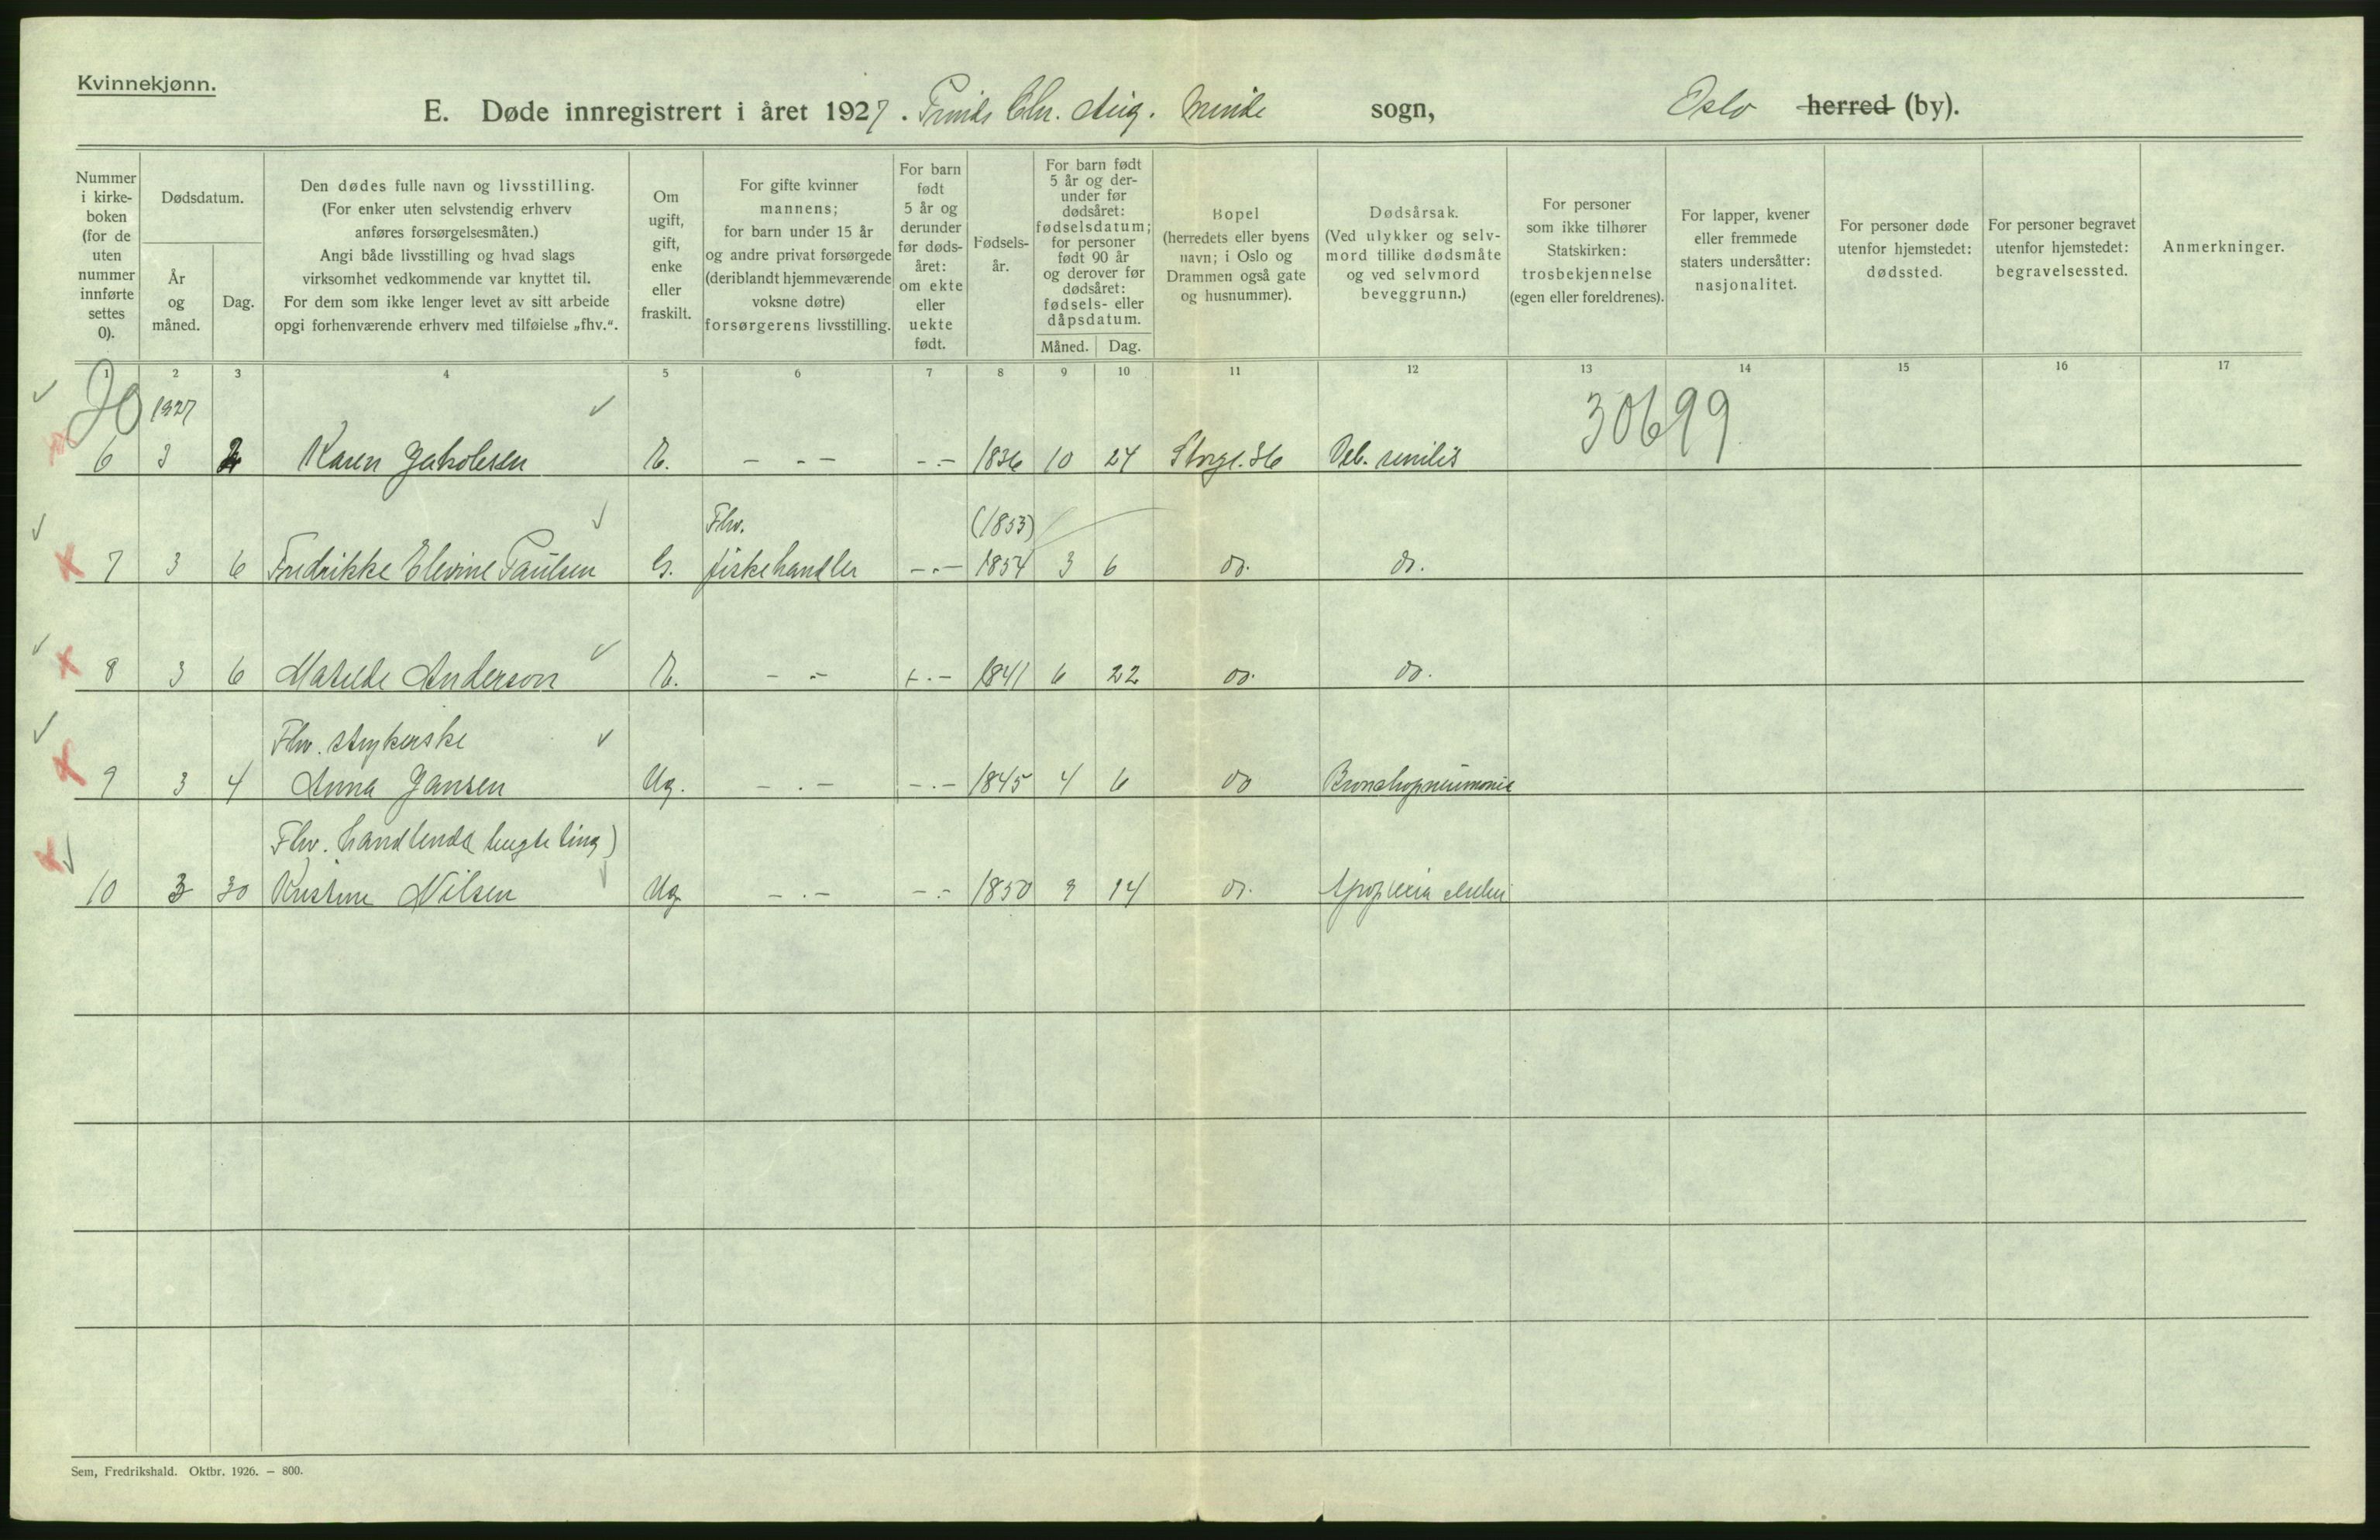 Kvinnekjønn.
E. Døde innregistrert i året 1927. Prinds Chr. Aug. Minde sogn, Oslo herred (by).
Nummer i kirke-boken (for de uten nummer innførte settes 0).
Dødsdatum.
År og måned.
Dag.
Den dødes fulle navn og livsstilling.
(For enker uten selvstendig erhverv
anføres forsørgelsesmåten.)
Angi både livsstilling og hvad slags
virksomhet vedkommende var knyttet til.
For dem som ikke lenger levet av sitt arbeide
opgi forhenværende erhverv med tilføielse „fhv.“.
Om ugift, gift, enke eller fraskilt.
For gifte kvinner
mannens;
for barn under 15 år
og andre privat forsørgede
(deriblandt hjemmeværende
voksne døtre)
forsørgerens livsstilling.
For barn født 5 år og derunder før døds-året: om ekte eller uekte født.
Fødsels-år.
For barn født
5 år og der-
under før
dødsåret:
fødselsdatum;
for personer
født 90 år
og derover før
dødsåret:
fødsels- eller
dåpsdatum.
Måned. Dag.
Bopel
(herredets eller byens
navn; i Oslo og
Drammen også gate
og husnummer).
Dødsårsak.
(Ved ulykker og selv-
mord tillike dødsmåte
og ved selvmord
beveggrunn.)
For personer
som ikke tilhører
Statskirken:
trosbekjennelse
(egen eller foreldrenes).
For lapper, kvener
eller fremmede
staters undersåtter:
nasjonalitet.
For personer døde
utenfor hjemstedet:
dødssted.
For personer begravet
utenfor hjemstedet:
begravelsessted.
Anmerkninger.
1 2 3 4 5 6 7 8 9 10 11 12 13 14 15 16 17
20 1927 30699
6 3 2 Karen Jakobsen E. - - - - - - 1836 10 24 Storgt. 36 Deb. senilis
Fhv. (1853)
7 3 6 Fredrikke Elevine Paulsen G. fiskehandler - - - 1854 3 6 do. do.
8 3 6 Matilde Anderson E. - - - - 1841 6 22 do. do.
Fhv. strykerske
9 3 4 Anna Jansen Ug. - . - - . - 1845 4 6 do Bronchopneumonie
Fhv. handlende
10 3 30 Kristine Nilsen Ug - . - - . - 1850 9 14 do. Apoplexia cerebri
Sem, Fredrikshald. Oktbr. 1926. — 800.